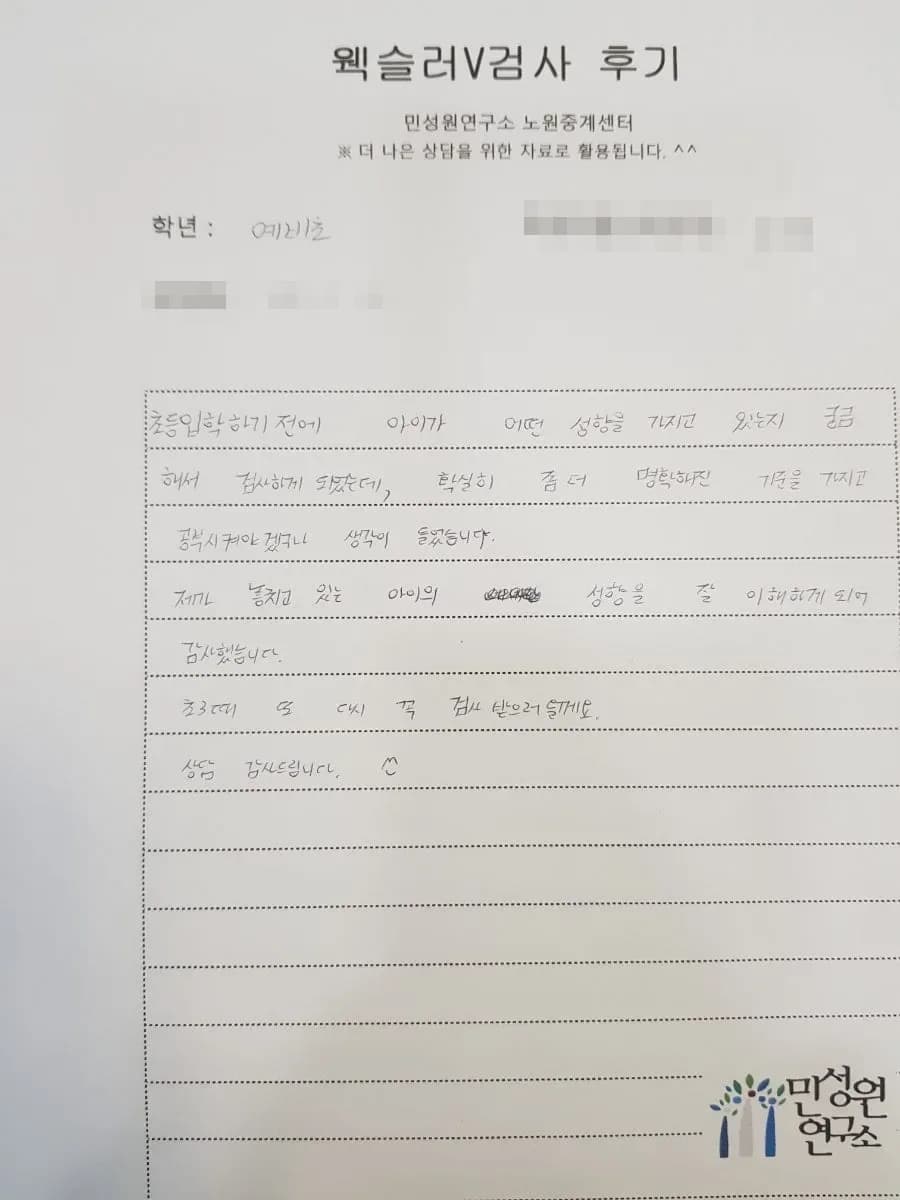 웩슬러V검사 후기
민성원연구소 노원중계센터
※ 더 나은 상담을 위한 자료로 활용됩니다. ^^
학년 : 예비초
초등입학하기 전에 아이가 어떤 성향을 가지고 있는지 궁금
해서 검사하게 되었는데, 확실히 좀 더 명확해진 기준을 가지고
공부시켜야겠구나 생각이 들었습니다.
제가 놓치고 있는 아이의 성향을 잘 이해하게 되어
감사했습니다.
초3때 또 다시 꼭 검사 받으러 올게요.
상담 감사드립니다.
민성원
연구소